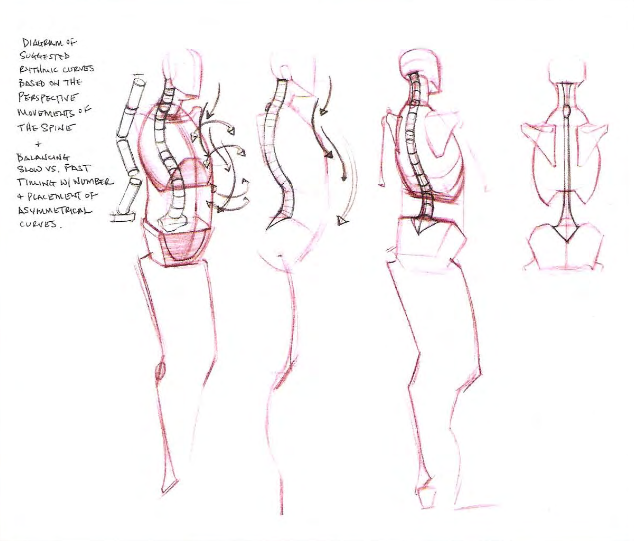 DIAGRAM OF
SUGGESTED
RYTHMIC CURVES
BASED ON THE
PERSPECTIVE
MOVEMENTS OF
THE SPINE
+
BALANCING
SLOW VS. FAST
TIMING W/ NUMBER
+ PLACEMENT OF
ASYMMETRICAL
CURVES.